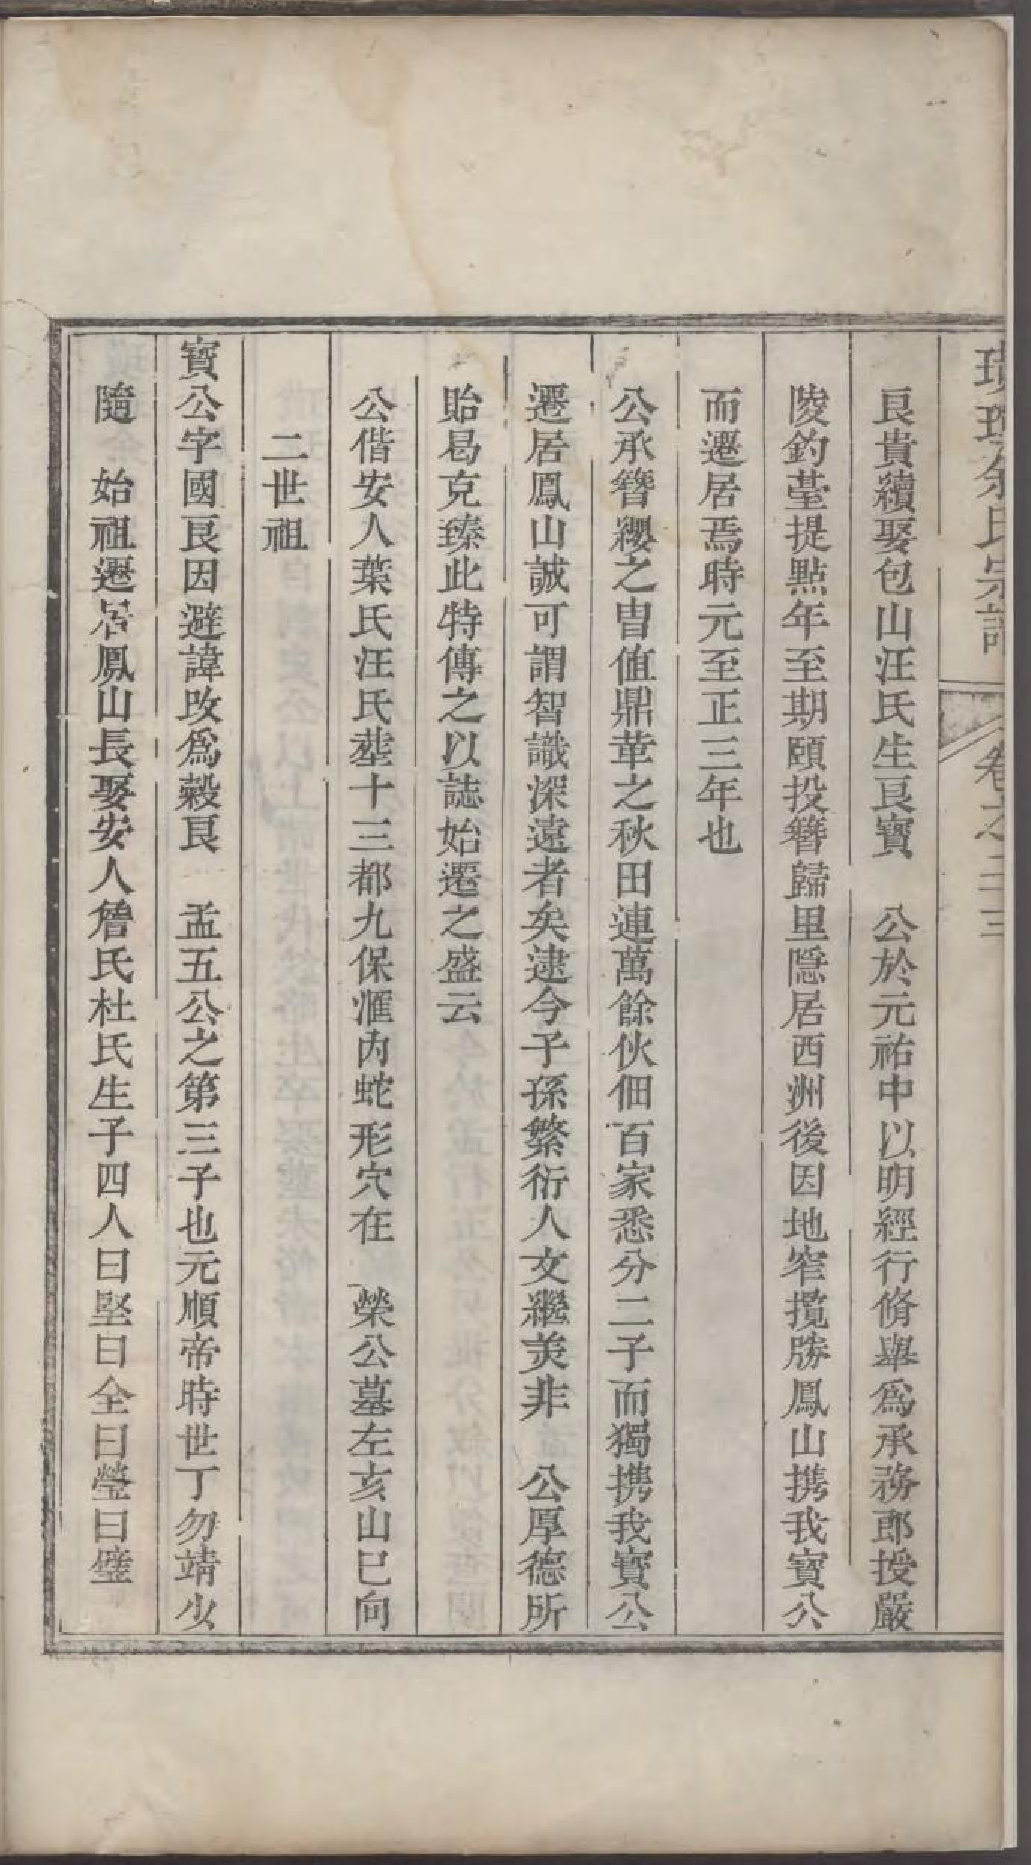 余氏宗譜 卷之三
良貴續娶包山汪氏生良寶 公於元祐中以明經行脩舉爲承務郎授嚴
陵釣臺提點年至期頤投簪歸里隱居西洲後因地窄攬勝鳳山携我寶公
而遷居焉時元至正三年也
公承簪纓之冑值鼎革之秋田連萬餘伙佃百家悉分二子而獨携我寶公
遷居鳳山誠可謂智識深遠者矣逮今子孫繁衍人文繼美非 公厚德所
貽曷克臻此特傳之以誌始遷之盛云
公偕安人葉氏汪氏塟十三都九保滙內蛇形穴在 榮公墓左亥山巳向
二世祖
寶公字國良因避諱改爲穀良 孟五公之第三子也元順帝時世丁勿靖少
隨 始祖遷居鳳山長娶安人詹氏杜氏生子四人曰堅曰全曰瑩曰璧